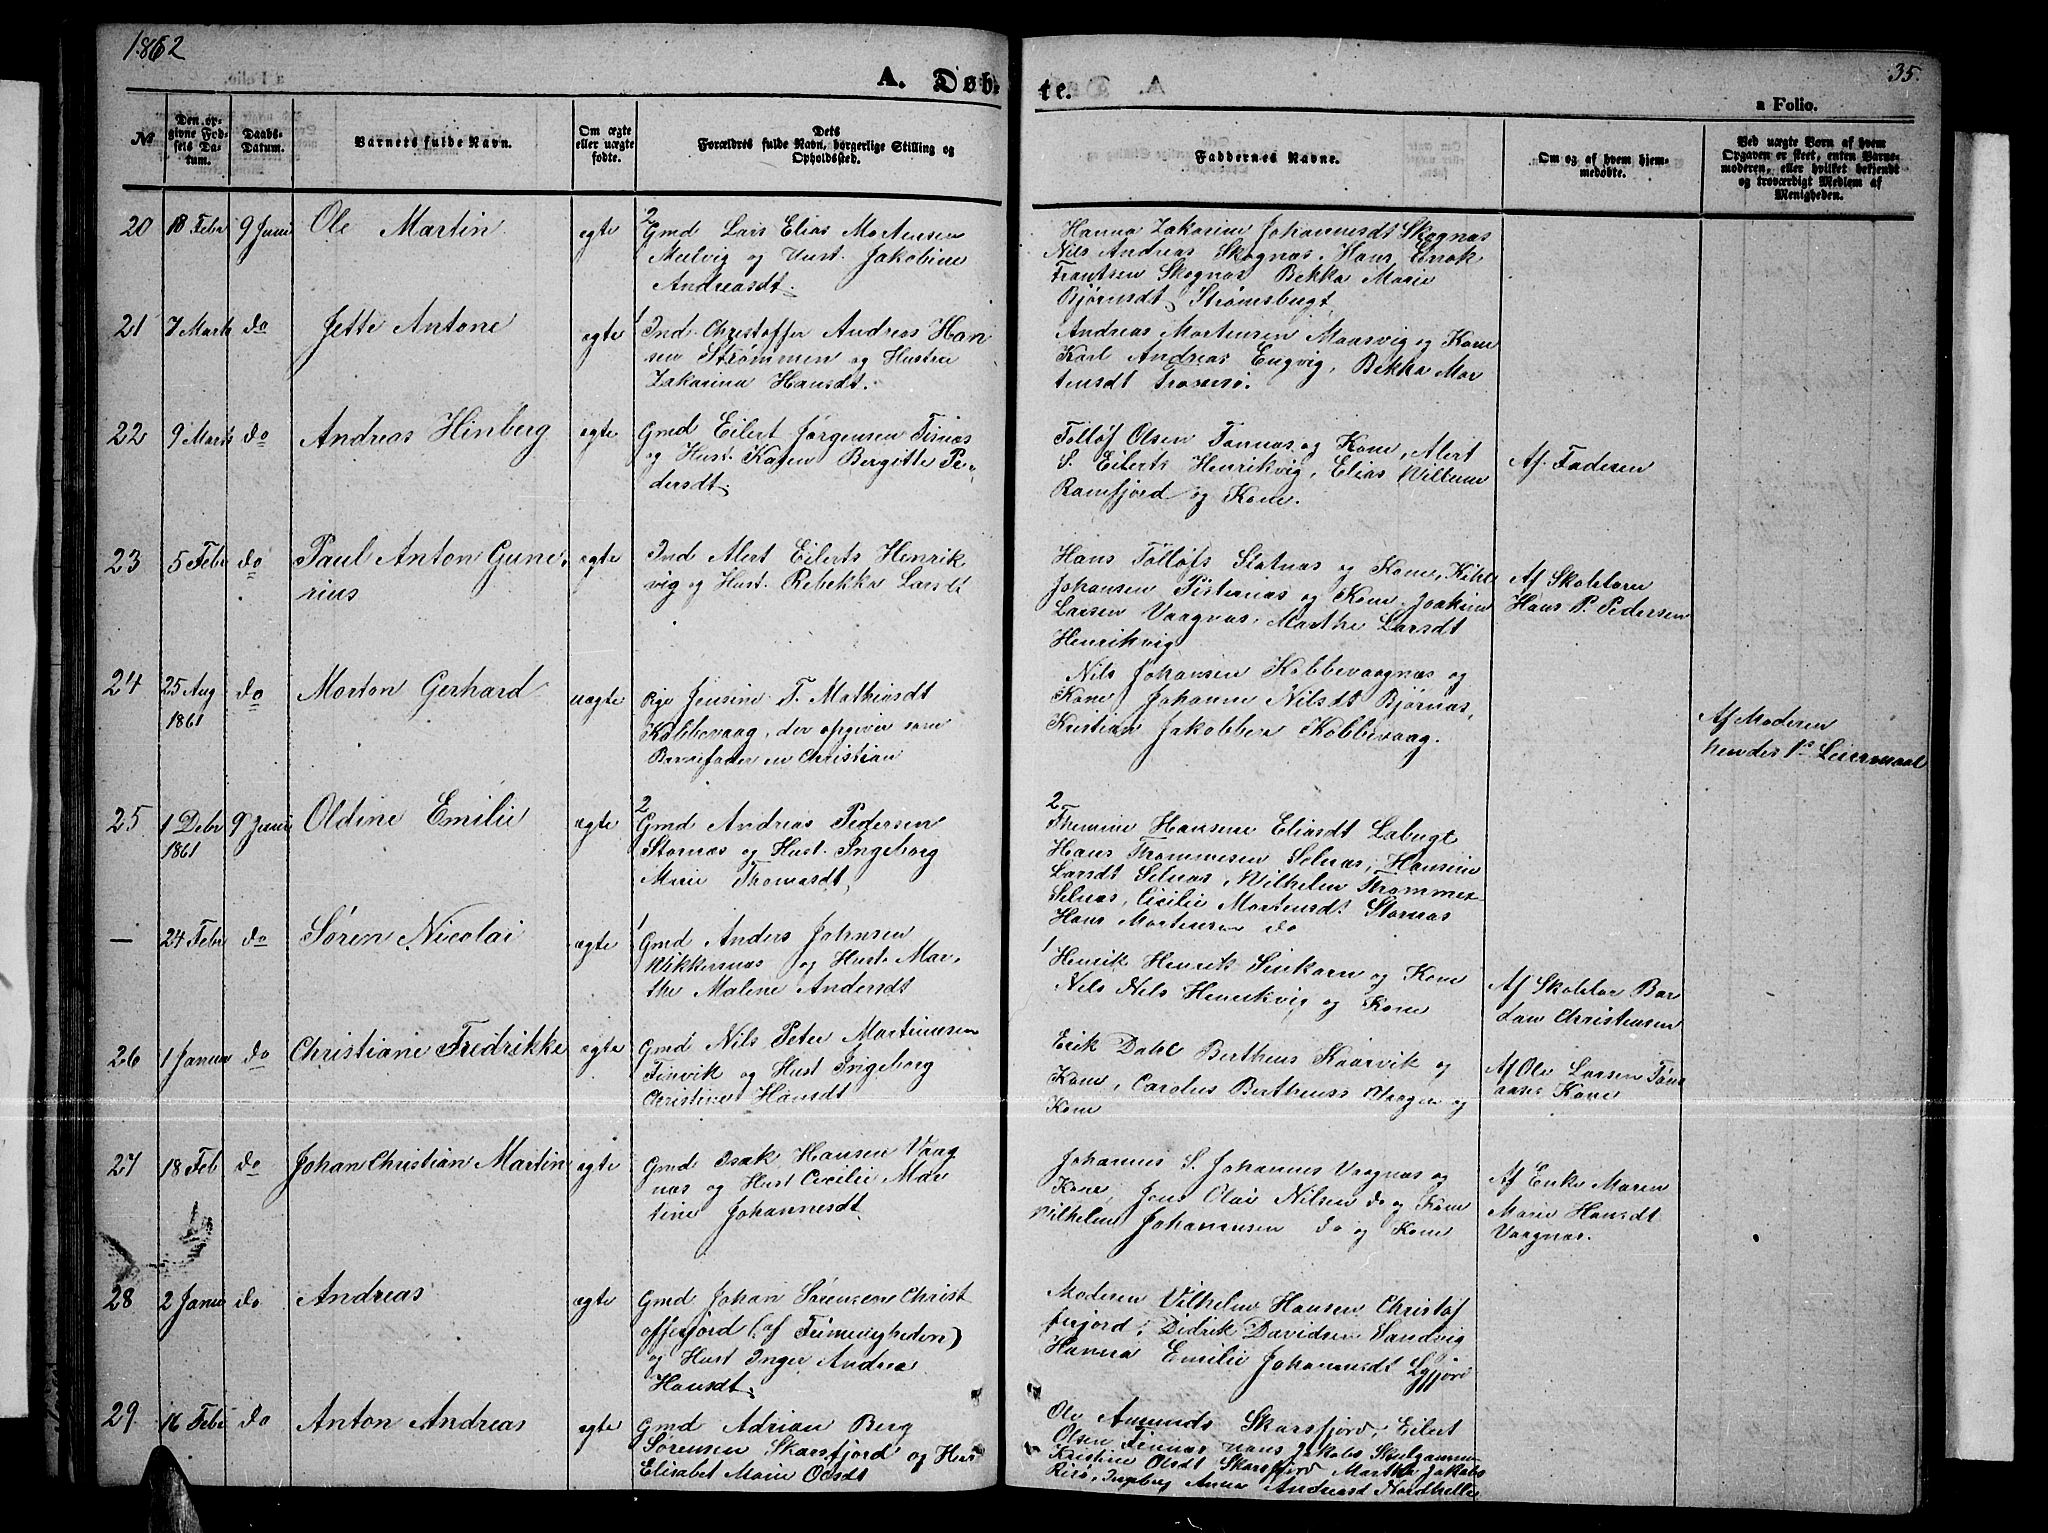 1862
A. Døb-
te.
35.
a Folio.
No
Den op-
givne Fød-
sels Da-
tum.
Daabs-
Datum.
Barnets fulde Navn.
Om ægte
eller uægte
fødte.
Dets
Forældres fulde Navn, borgerlige Stilling og
Opholdssted.
Faddernes Navne.
Om og af hvem hjem-
medøbte.
Ved uægte Børn af hvem
Opgaven er skeet, enten Barne-
moderen, eller hvilket bekjendt
og troværdigt Medlem af
Menigheden.
20 18 Febr 9 Juni Ole Martin ægte
2
Gmd Lars Elias Mortensen
Melvig og Hust. Jakobine
Andreasdt.
Hanna Zakarine Johannesdt Skognæs
Nils Andreas Skognæs, Hans Enok
Frantsen Skognæs Bekka Marie
Bjørnsdt Strømsbugt
21 7 Marts do Jette Antone ægte
1
Ind. Christoffer Andreas Han
sen Strømmen og Hustru
Zakarina Hansdt.
Andreas Mortensen Maasvig og Kone
Karl Andreas Engvig, Bekka Mor
tensdt Tromsø.
22 9 Marts do Andreas Hinberg ægte
Gmd Eilert Jørgensen Tisnæs
og Hust. Karen Bergitte Pe-
dersdt.
Tolløf Olsen Tønnæs og Kone, Alert
S. Eilerts Henrikvig, Elias Villum
Ramfjord og Kone.
Af Faderen
23 5 Febr do Paul Anton Gune-
rius
ægte
Ind Alert Eilerts Henrik
vig og Hust. Rebekka Larsdt
Hans Tolløfs Slatnæs og Kone,
Johansen Tisternæs og Kone. Joakim
Larsen Vaagnæs, Marthe Larsdt
Henrikvig
Af Skolelærer
Hans P. Pedersen
24 25 Aug do Morton Gerhard uægte
1861
Pige Jensine T. Mathiasdt
Kobbevaag, der opgiver som
Barnefader en Christian
Nils Johansen Kobbevaagnæs og
Kone Johanne Nilsdt Bjørnæs,
Kristian Jakobsen Kobbevaag.
Af Moderen
hendes 1ste Leiermaal
25 1 Debr 9 Juni Oldine Emilie ægte
1861
2
Gmd Andreas Pedersen
Stornæs og Hust. Ingeborg
Marie Thomasdt
2
Hansine Eliasdt Labugt
Hans Thommesen Selnæs, Hansine
Larsdt Selnæs, Vilhelm Thommes
Selnæs, Cicilie Mortensdt Stornæs
Hans Mortensen do
— 24 Febr do Søren Nicolai ægte
1
Gmd Anders Johnsen
Vikkernæs og Hust. Mar-
the Malene Andersdt
1
Henrik Henrik Sinkarn og Kone
Nils Nils Henrikvig og Kone
Af Skolelær Bar
Christensen
26 1 Januar do Christiane Fredrikke ægte
Gmd Nils Peter Martinusen
Finvik og Hust Ingeborg
Christine Hansdt
Erik Dahl Bertheus Kaarvik og
Kone, Carolus Bertheuss Vaagen og
Kone
Af Ole Larsen
Kone
27 18 Feb do Johan Christian Martin ægte
Gmd Isak Hansen Vaag
næs og Hust Cecilie Mar
tine Johannesdt
Johannes S. Johannes Vaagnæs og
Kone, Jens Olai Nilsen do og Kone
Vilhelm Johannesen do og Kone
Af Enke Maren
Marie Hansdt
Vaagnæs.
28 2 Januar do Andreas ægte
Gmd Johan Sørensen Christ
offerfjord (af Frimenigheden)
og Hust Inger Andrea
Hansdt.
Moderen Vilhelm Hansen Christof
ferfjord, Didrik Davidsen Sandvig
Hanna Emilie Johannesdt Lyfjord
29 16 Febr do Anton Andreas ægte
Gmd Adrian Berg
Sørensen Skarsfjord og Hust
Elisabet Marie Olsdt
Ole Amunds Skarsfjord, Eilert
Olsen Finnæs Hans Jakobs Skulgammen
Kristine Olsdt Skarsfjord Martha Jakobs
Risø, Ingeborg Anna Andreasdt Nordhella